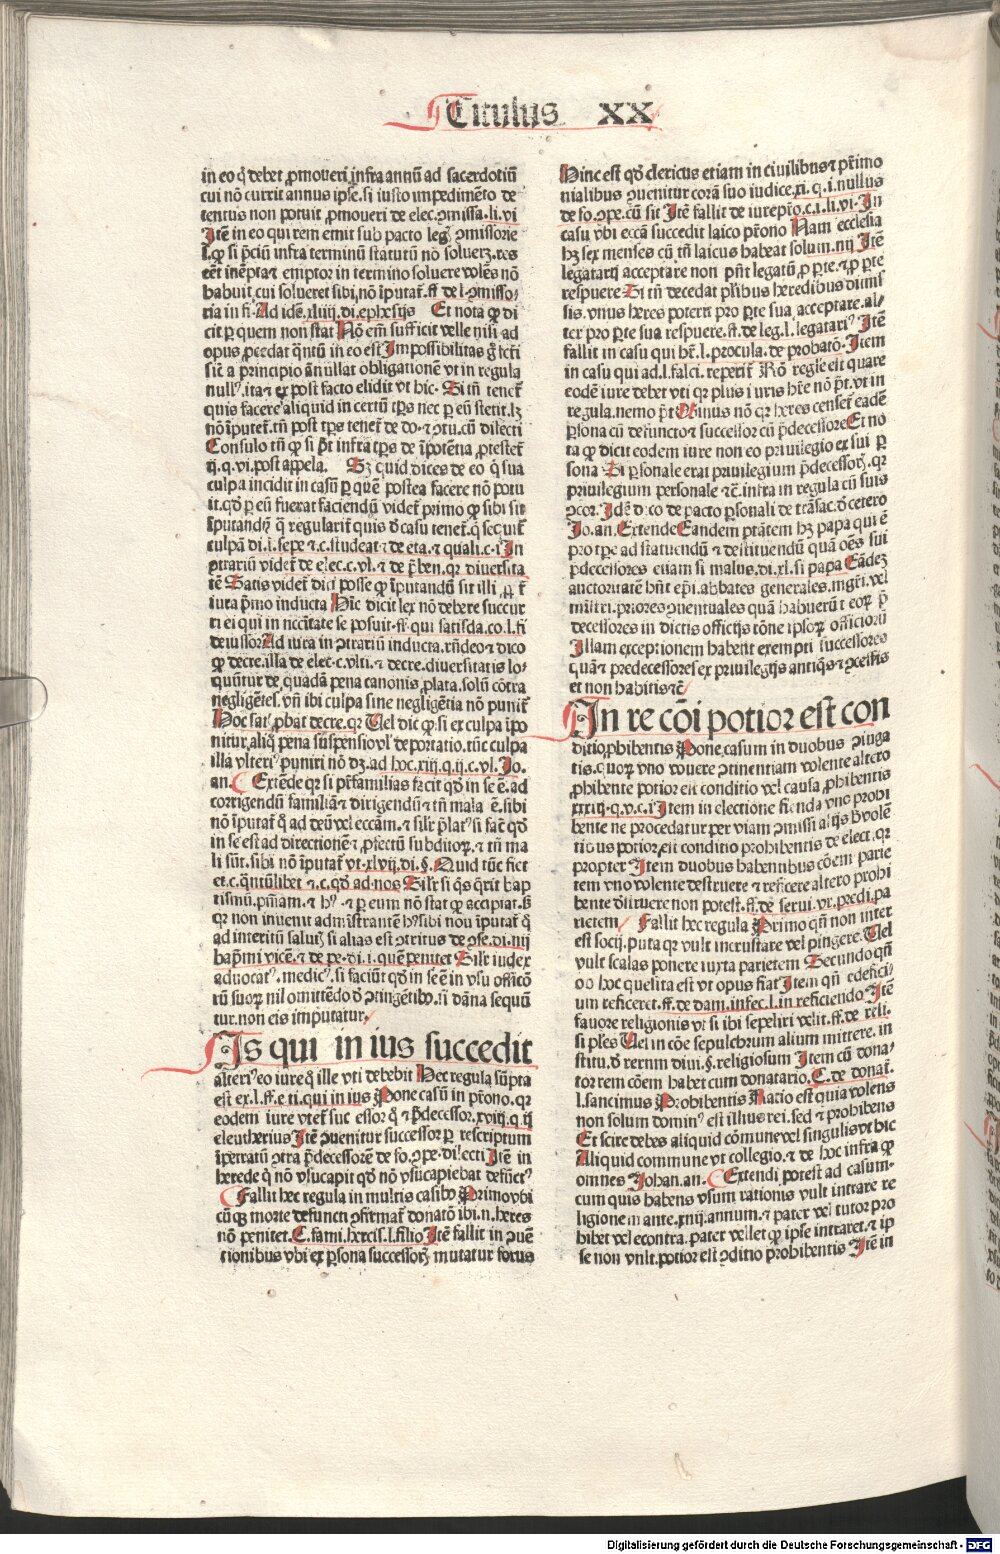 Titulus XX
in eo q̃ debet ꝓmoueri infra annũ ad sacerdotiũ
cui nõ currit annus ipse. si iusto impedimẽto de
tentus non potuit ꝓmoueri de elec. ꝯmissa. li. vi
Itẽ in eo qui rem emit sub pacto leg ꝯmissorie
ꝙ si p̃ciũ infra terminũ statutũ nõ soluerꝫ. res
eẽt inẽpta ⁊ emptor in termino soluere volẽs nõ
habuit cui solueret sibi. nõ iputat̃. ff de l. ꝯmisso
ria in fi. Ad idẽ. xliiij. di. ephesijs Et nota ꝙ di
cit per quem non stat Nõ em̃ sufficit velle nisi ad
opus ꝓcedat q̃ntũ in eo est Impossibilitas g̃ fcti
sic̃ a principio ãnullat obligationẽ vt in regula
null⁹. ita ⁊ ex post facto elidit vt hic. Si tñ tenet̃
quis facere aliquid in certũ tp̃s nec per eũ stetit. lꝫ
nõ iputet̃. tñ post tp̃s tenet̃ de do. ⁊ ꝯtu. cũ dilecti
Consulo tñ ꝙ si p̃t infra tp̃s de ĩpotẽtia ꝓtestet̃
ij. q. vi. post appela. Sꝫ quid dices de eo q̃ sua
culpa incidit in casũ per quẽ postea facere nõ potu
it. qd̃ per eũ fuerat faciendũ videt̃ primo ꝙ sibi sit
iputandũ q̃ regularit̃ quis d̃ casu tenet̃. q̃ sequit̃
culpã di. i. sepe ⁊ c. studeat ⁊ de eta. ⁊ quali. c. i In
ꝯtrariũ videt̃ de elec. c. vl. ⁊ de p̃ben. qr diuersita
tẽ Satis videt̃ dici posse ꝙ iputandũ sit illi
iura p̃mo inducta Hic̃ dicit lex nõ debere succur
ri ei qui in nccitate se posuit. ff qui satisda. co. l. fi
deiussor Ad iura in ꝯtrariũ inducta. rñdeo ⁊ dico
ꝙ decre. illa de elec. c. vlti. ⁊ decre. diuersitatis lo
quũtur de quadã pena canonis ꝓlata. solũ cõtra
negligẽtes. vñ ibi culpa sine negligẽtia nõ punit̃
Hoc satꝭ ꝓbat decre. qr Uel dic ꝙ si ex culpa ipo
nitur aliq̃ pena suspensio vl' deportatio. tũc culpa
illa vlteri⁹ puniri nõ dꝫ. ad hoc. xiij. q. ij. c. vl. Jo.
an. Extẽde qr si p̃rfamilias facit qd̃ in se ẽ. ad
corrigendũ familiã ⁊ dirigendũ ⁊ tñ mala ẽ. sibi
nõ iputat̃ q̃ ad deũ vel eccãm. ⁊ sil'r p̃lat⁹ si fac̃ qd̃
in se est ad directionẽ ⁊ ꝓfectũ subditoꝝ. ⁊ tñ ma
li sũt. sibi nõ iputat̃ vt. xlvij. di. §. Quid tũc fict
et. c. q̃ntũlibet ⁊. c. qd̃ ad nos Sil'r si q̃s q̃rit bap
tismũ. pñiam. ⁊ h⁹. ⁊ per eum nõ stat ꝙ accipiat. sꝫ
qr non inuenit administrantẽ h⁹ sibi nou iputat̃ q̃
ad interitũ salutꝭ si alias est ꝯtritus de ꝯse. di. iiij
baptmi vicẽ. ⁊ de pe. di. i. quẽ penitet Sil'r iudex
aduocat⁹. medic⁹. si faciũt qd̃ in se ẽ in vsu officõ
rũ suoꝝ nil omittẽdo d̃ ꝯtingẽtibꝰ. si dãna sequũ
tur. non eis imputatur.
Is qui in ius succedit
alteri⁹ eo iure q̃ ille vti debebit Hec regula sũpta
est ex. l. ff. e. ti. qui in ius Pone casũ in p̃rono. qr
eodem iure vtet̃ suc essor q̃ ⁊ p̃decessor. xviij. q. ij
eleutherius Itẽ ꝯuenitur successor per rescriptum
ipetratũ ꝯtra p̃decessorẽ de so. ꝯpe. dilecti Itẽ in
herede q̃ nõ vsucapit qd̃ nõ vsucapiebat defũct⁹
Fallit hec regula in multis casibꝰ Primo vbi
cũ q̃s morte defuncti ꝯfirmat̃ donatõ ibi. n. heres
nõ penitet. C. fami. hercis. l. filio Itẽ fallit in ꝯuẽ
tionibus vbi ex ꝑsona successorꝭ mutatur forus
Hinc est qd̃ clericus etiam in ciuilibus ⁊ p̃rimo
nialibus ꝯuenitur corã suo iudice. xi. q. i. nullus
de fo. ꝯpe. cũ sit Itẽ fallit de iurep̃ro. c. i. li. vi. In
casu vbi eccã succedit laico p̃rono Nam ecclesia
hꝫ sex menses cũ tñ laicus habeat solum. iiij Itẽ
legatarij acceptare non pñt legatũ ꝓ parte. ⁊ ꝓ parte
respuere Si tñ decedat plribus heredibus dimis
sis. vnus heres poterit pro parte sua acceptare. al
ter pro parte sua respuere. ff. de leg. l. legatari⁹ Itẽ
fallit in casu qui ht̃. l. procula. de probatõ. Item
in casu qui ad. l. falci. reperit̃ Rõ regle est quare
eodẽ iure debet vti qr plus iuris hr̃e nõ p̃t. vt in
regula. nemo p̃t Minus nõ qr heres censet̃ eadẽ
ꝑsona cũ defuncto ⁊ successor cũ p̃decessore Et no
ta ꝙ dicit eodem iure non eo priuilegio ex sui per
sona Si ꝑsonale erat priuilegium p̃decessorꝭ. qr
priuilegium personale ⁊c̃. infra in regula cũ suis
ꝯcor. Idẽ dico de pacto ꝑsonali de trãsac. d̃ cetero
Jo. an. Extende Eandem ptãtem hꝫ papa qui ẽ
pro tpe ad statuendũ ⁊ destituendũ quã oẽs sui
p̃decessores etiam si malus. di. xl. si papa Eãdeꝫ
auctoritatẽ hñt ep̃i. abbates generales. mgr̃i. vel
mr̃i. priores ꝯuentuales quã habuerũt eoꝝ p̃
decessores in dictis officijs rõne ipsoꝝ officiorũ
Illam exceptionem habent exempti successores
quã ⁊ predecessores ex priuilegijs antiq̃s ⁊ ꝯcessis
et non habitis ⁊c̃
In re cõi potior est con
ditio ꝓhibentis Pone casum in duobus ꝯiuga
tis. quoꝝ vno vouere ꝯtinentiam volente altero
ꝓhibente potior est conditio vel causa ꝓhibentis
xxxiij. q. v. c. i Item in electione fienda vno prohi
bente ne procedatur per viam ꝯmissi alijs volẽ
tibus potior est conditio prohibentis de elect. qr
propter Item duobus habentibus cõem parie
tem vno volente destruere ⁊ reficere altero prohi
bente diruere non potest. ff. de serui. vr. predi. pa
rietem Fallit hec regula Primo qñ non inter
est socij. puta qr vult incrustare vel pingere. Uel
vult scalas ponere iuxta parietem Secundo qñ
oo hoc quesita est vt opus fiat Item qñ edifici
um reficeret. ff. de dam. infec. l. in reficiendo Itẽ
fauore religionis vt si ibi sepeliri velit. ff. de reli.
si ples Uel in cõe sepulchrum alium mittere. in
stitu. d̃ rerum diui. §. religiosum Item cũ dona
torem cõem habet cum donatario. C. de donat̃.
l. sancimus Prohibentis Ratio est quia volens
non solum domin⁹ est illius rei. sed ⁊ prohibens
Et scire debes aliquid cõmune vel singulis vt hic
Aliquid commune vt collegio. ⁊ de hoc infra ꝙ
omnes Johan. an. Extendi potest ad casum.
cum quis habens vsum rationis vult intrare re
ligionem ante. xiiij. annum. ⁊ pater vel tutor pro
hibet vel econtra. pater vellet ꝙ ipse intraret. ⁊ ip
se non vult. potior est ꝯditio prohibentis Itẽ in
Digitalisierung gefördert durch die Deutsche Forschungsgemeinschaft - DFG